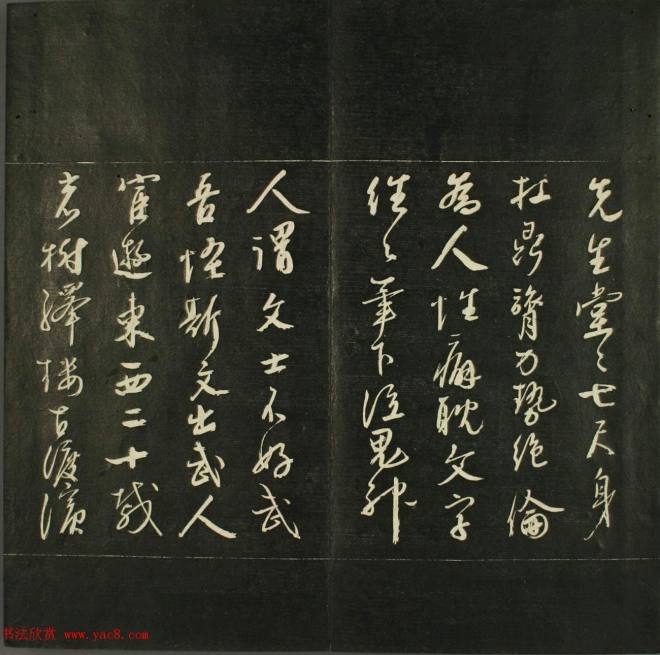 先生堂〻七尺身
扛鼎膂力势绝倫
為人性癖耽文字
往〻筆下泣鬼神
人謂文士不好武
吾怪斯文出武人
宦遊東西二十载
老樹驛楼古渡濱
书法欣赏 www.yac8.com